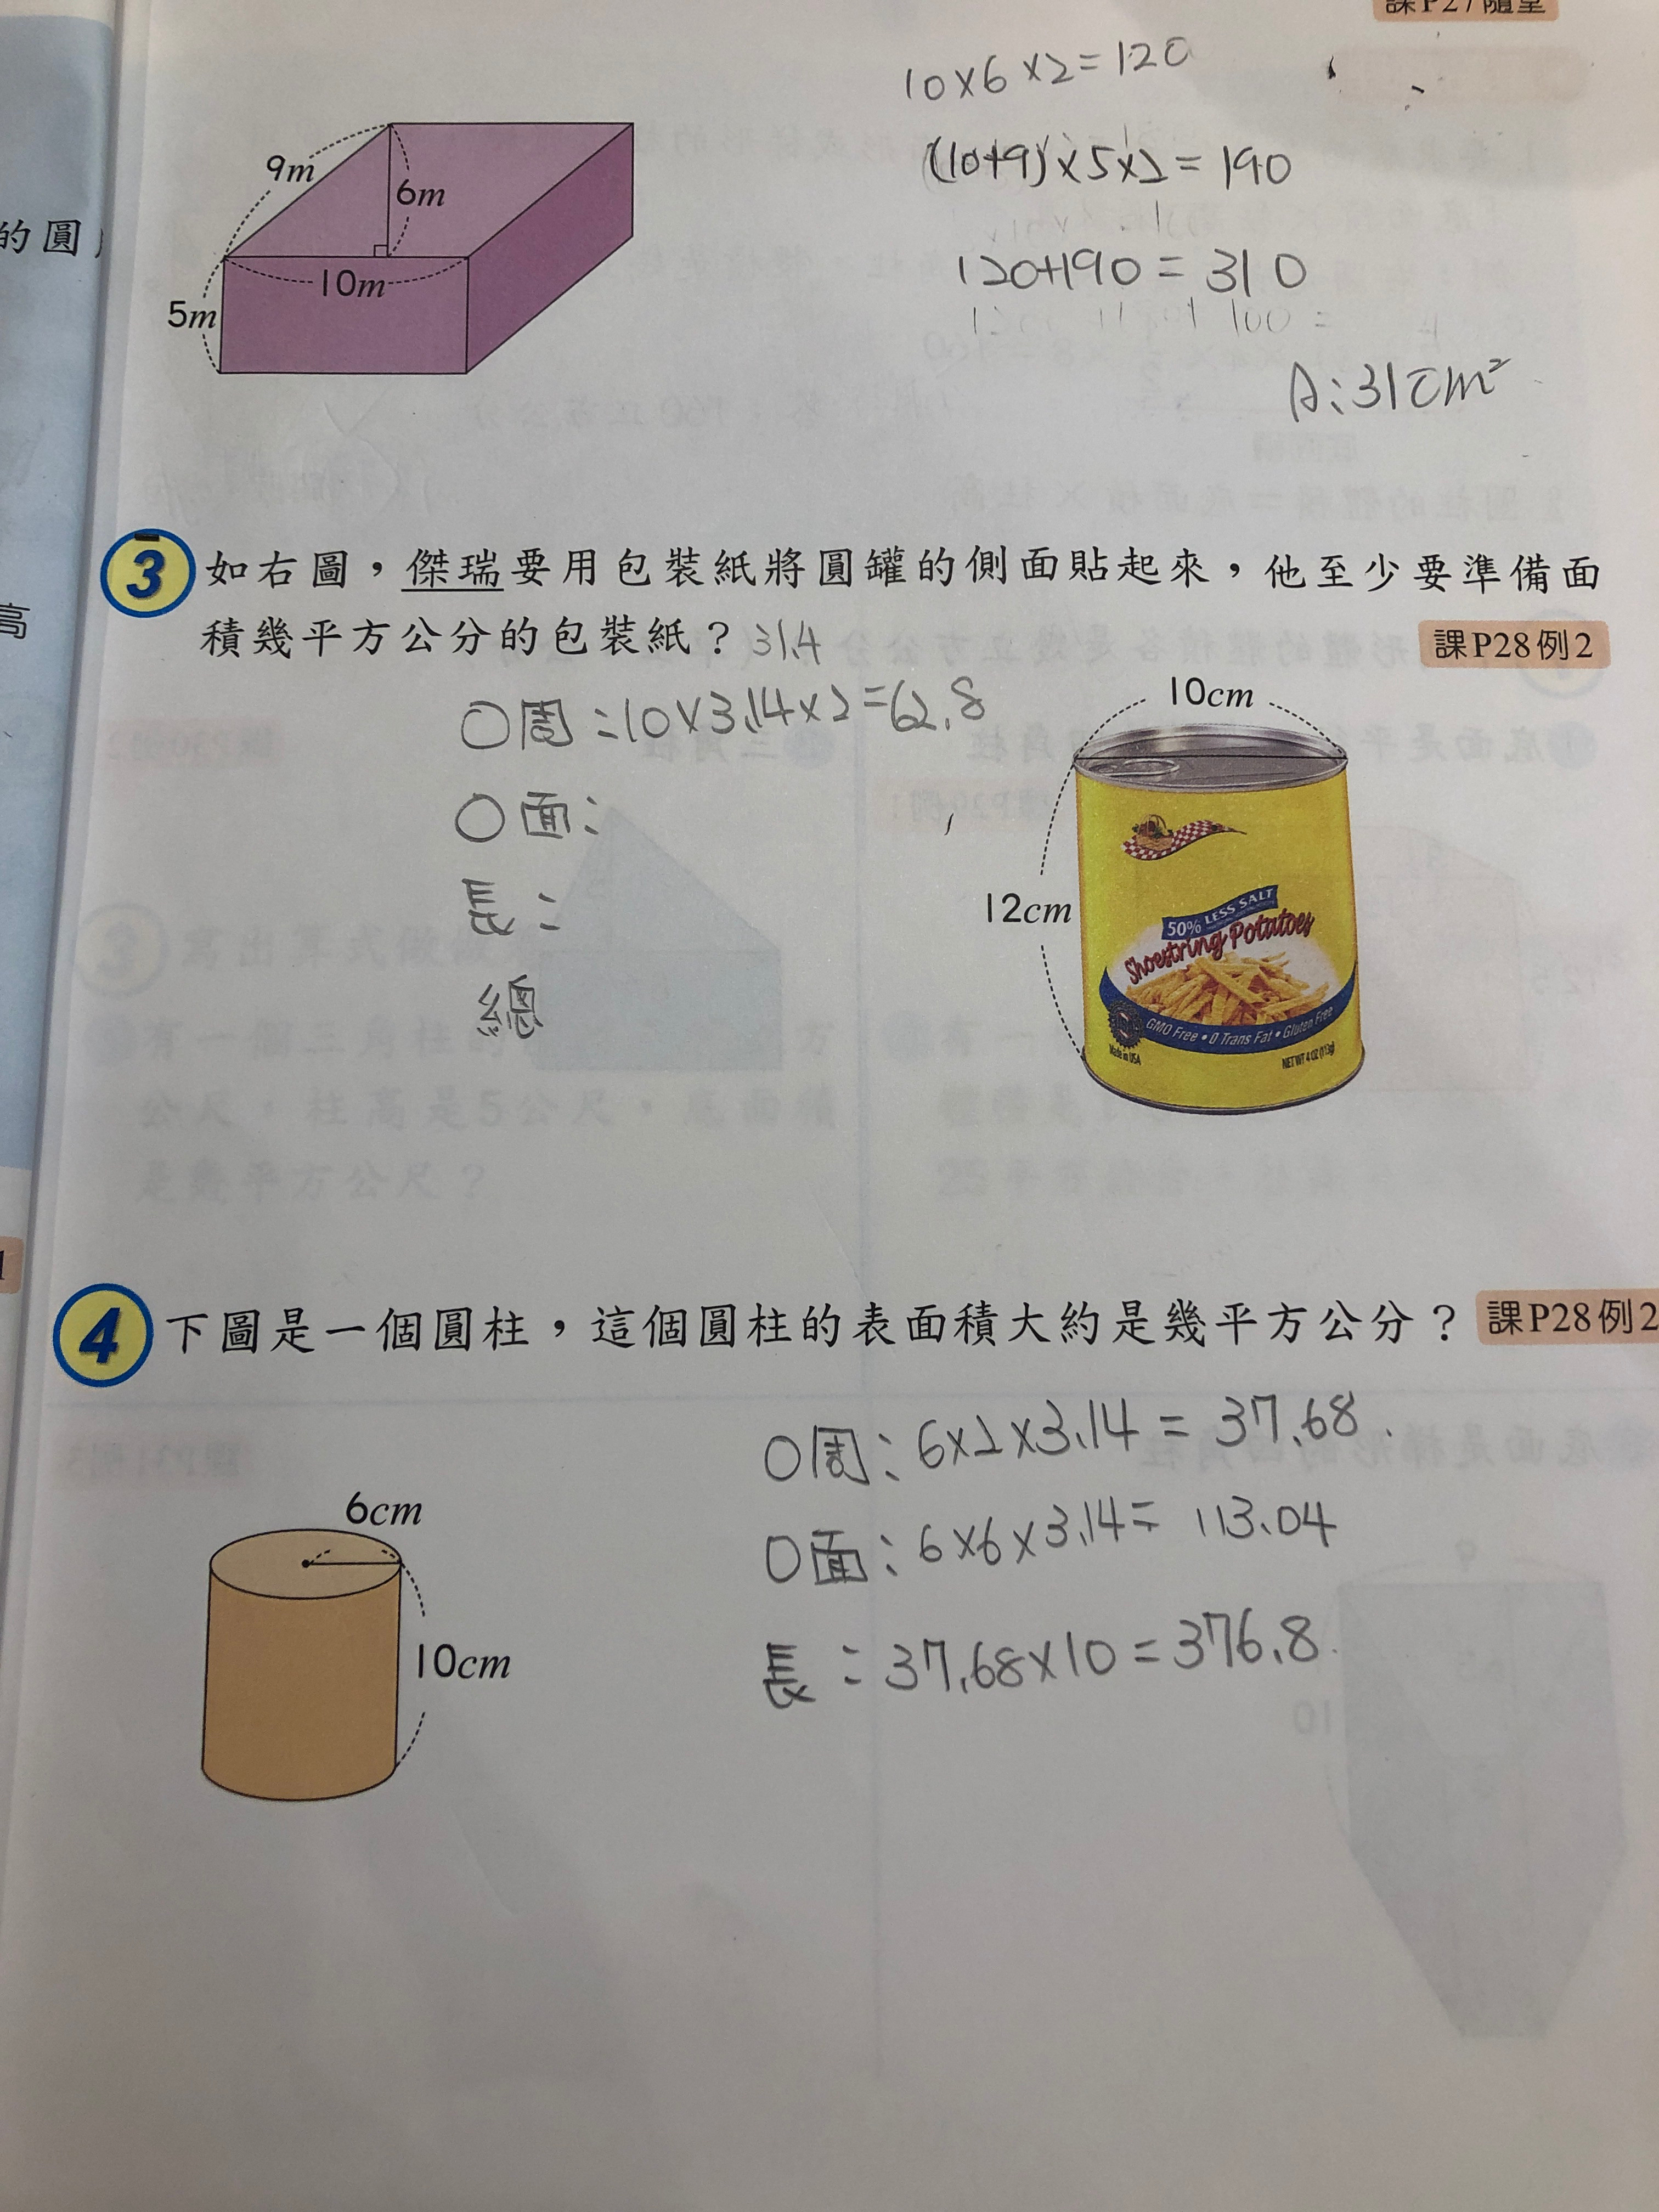 課P27隨堂
10×6×2=120
(10+9)×5×2=190
120+190=310
A:310m²
9m
6m
10m
5m
的圓
高
3 如右圖，傑瑞要用包裝紙將圓罐的側面貼起來，他至少要準備面
積幾平方公分的包裝紙？ 31.4
課P28例2
○周:10×3.14×2=62.8
○面:
長:
總
10cm
12cm
50% LESS SALT
Shoestring Potatoes
GMO Free • 0 Trans Fat • Gluten Free
Made in USA
NET WT 4 OZ (113g)
1
4 下圖是一個圓柱，這個圓柱的表面積大約是幾平方公分？ 課P28例2
○周:6×2×3.14=37.68
○面:6×6×3.14=113.04
長:37.68×10=376.8
6cm
10cm